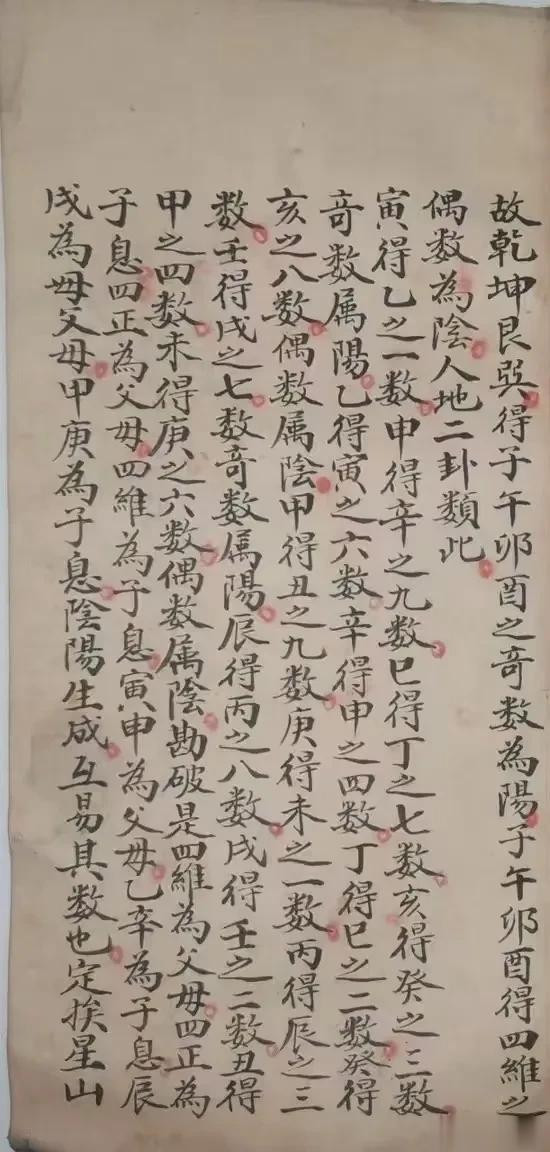 故乾坤艮巽得子午卯酉之奇数為陽子午卯酉得四維之
偶数為陰人地二卦類此
寅得乙之一数申得辛之九数巳得丁之七数亥得癸之三数
奇数属陽乙得寅之六数辛得申之四数丁得巳之二数癸得
亥之八数偶数属陰甲得丑之九数庚得未之一数丙得辰之三
数壬得戌之七数奇数属陽辰得丙之八数戌得壬之二数丑得
甲之四数未得庚之六数偶数属陰勘破是四維為父母四正為
子息四正為父母四維為子息寅申為父母乙辛為子息辰
戌為母父母甲庚為子息陰陽生成互易其数也定挨星山